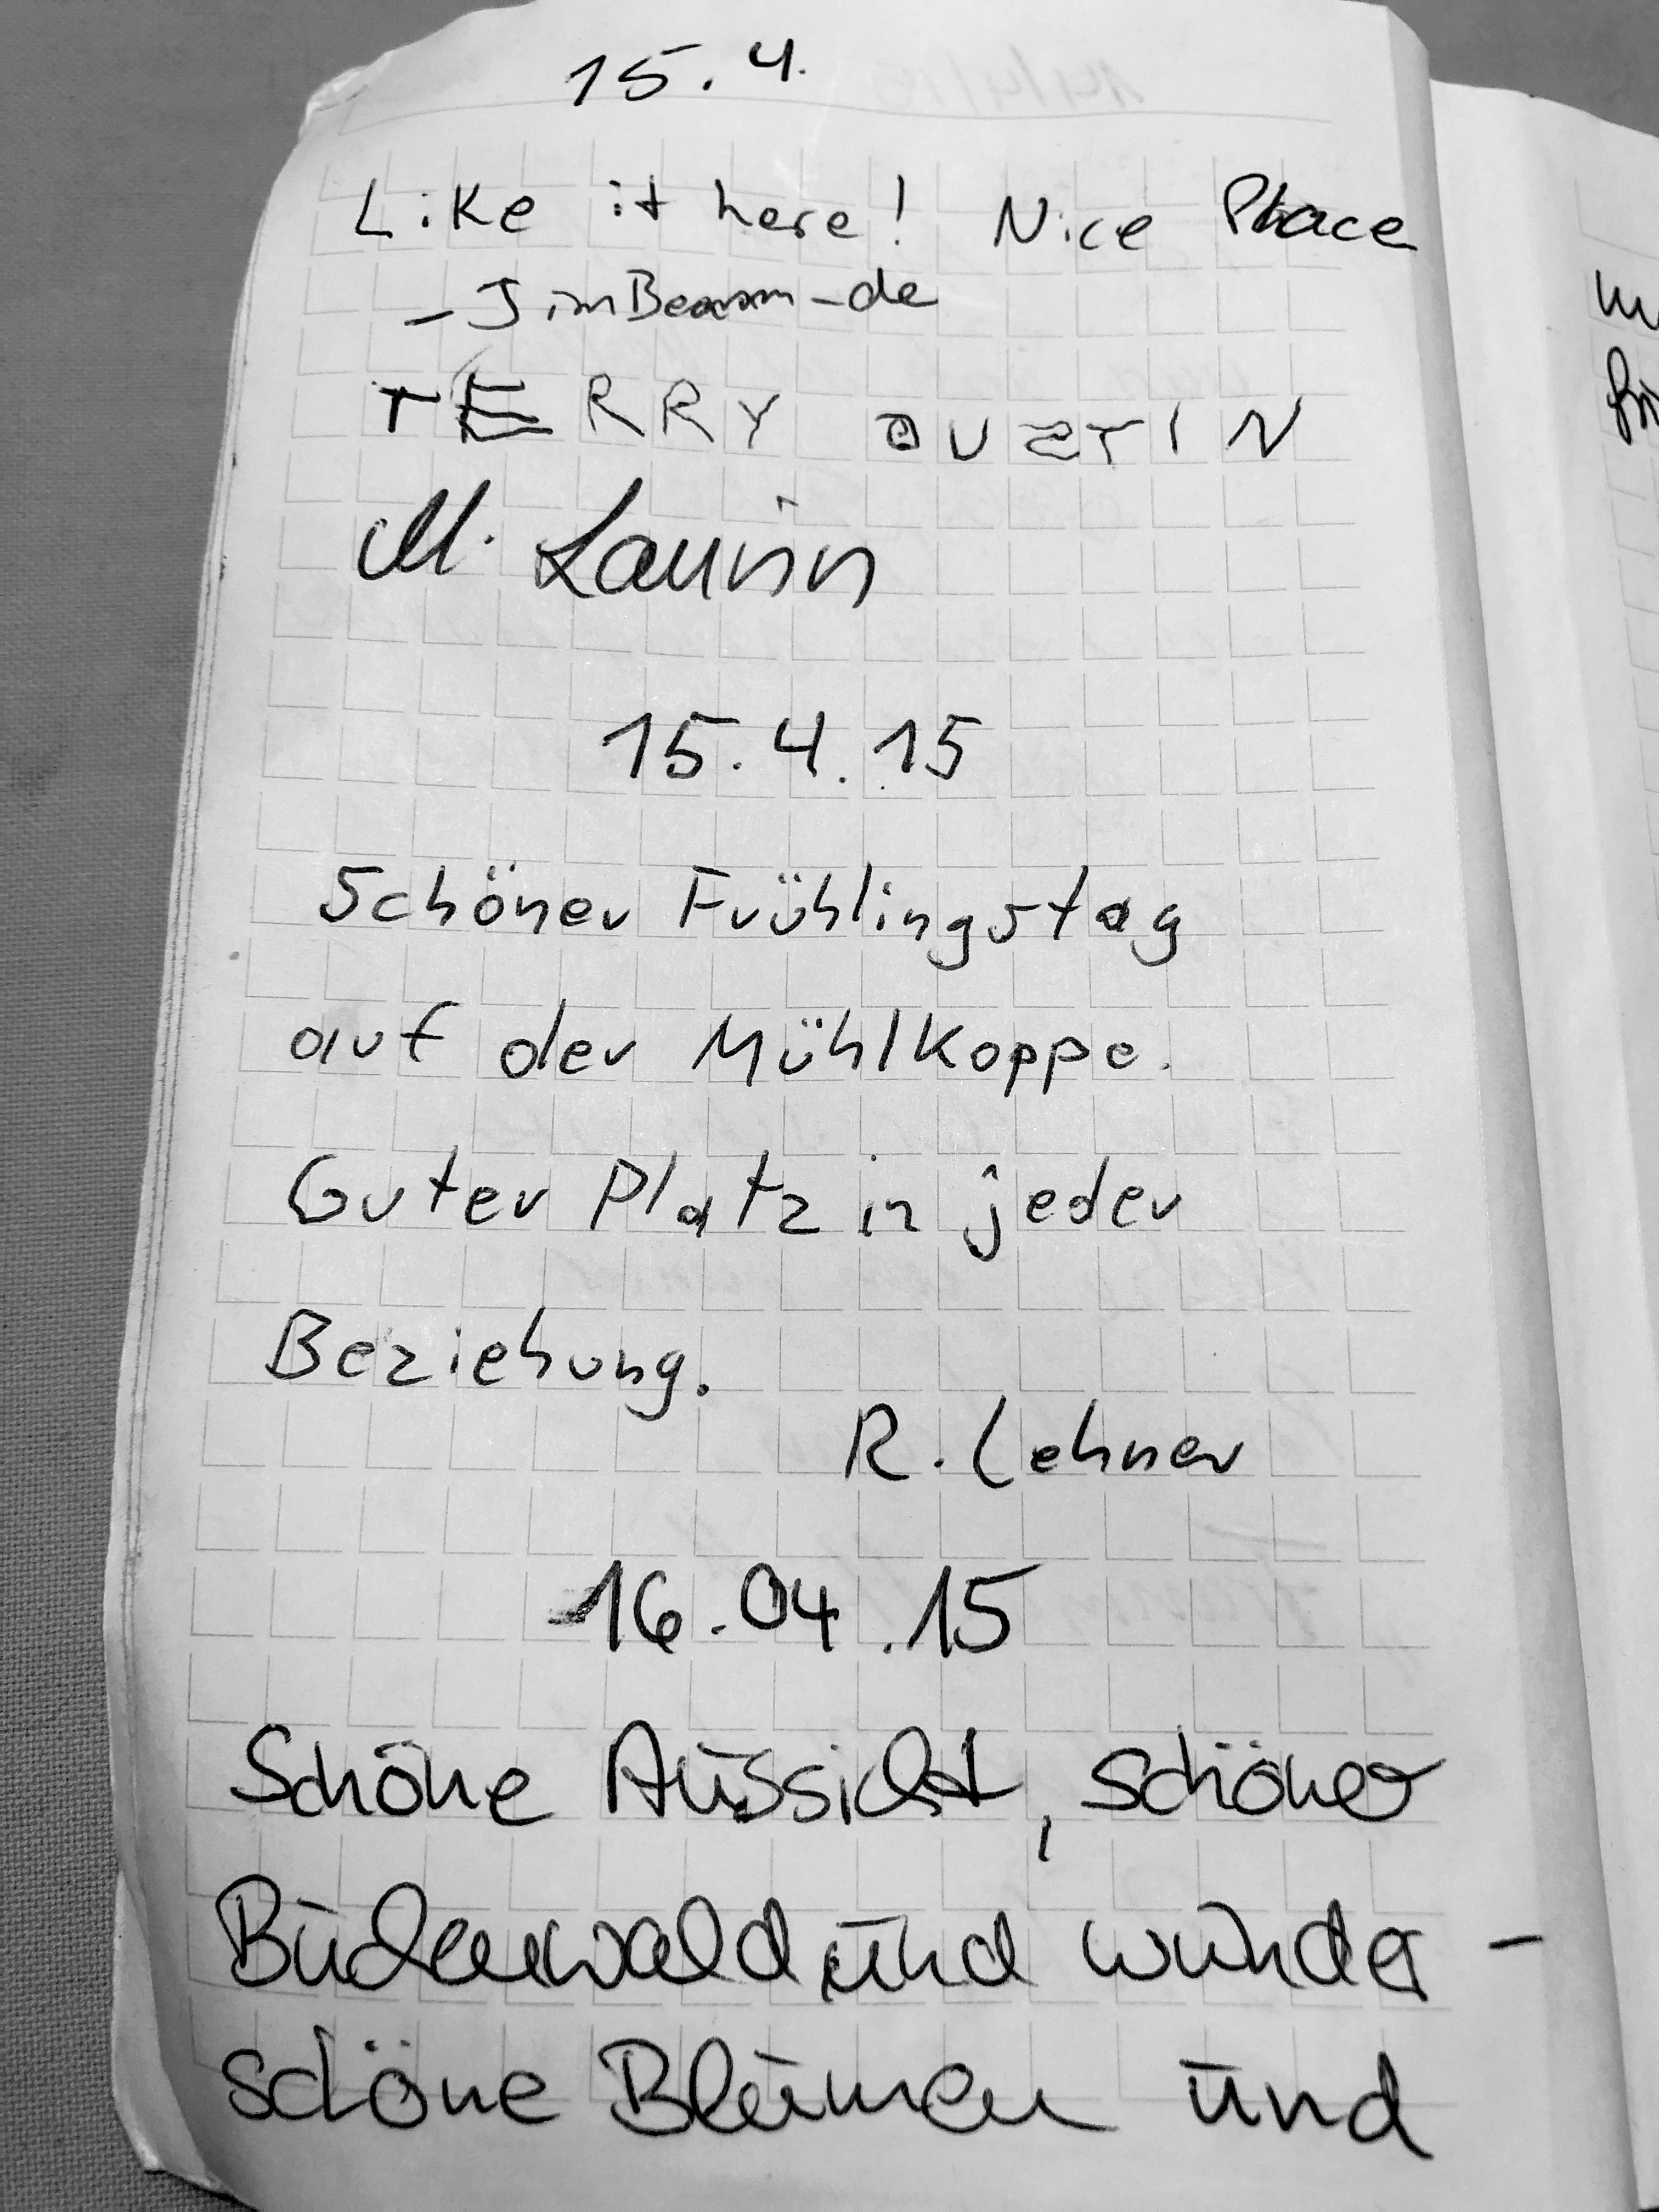 15.4.
Like it here! Nice Place
- JimBeam_de
TERRY
M. Laurin
15.4.15
Schöner Frühlingstag
auf der Mühlkoppe.
Guter Platz in jeder
Beziehung.
R. Lehner
16.04.15
Schöne Aussicht, schöner
Buchenwald und wunder-
schöne Blumen und